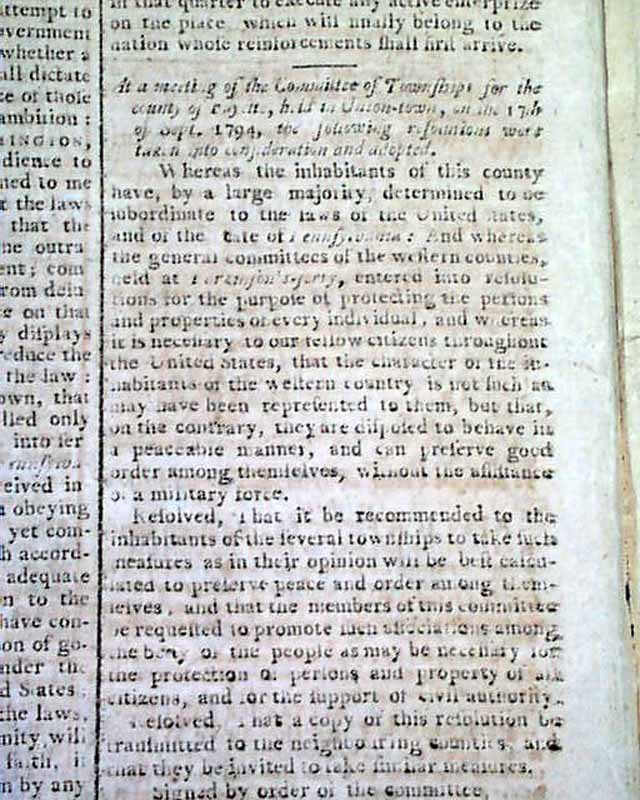 ttempt to
overnment
whether a
all dictate
ce of those
ambition:
INGTON,
dience to
ned to me
t the laws
that the
ne outra
ent; com
rom delu
ce on that
y displays
reduce the
the law:
own, that
lled only
into ser
ennsylva
ceived in
n obeying
yet com-
h accord-
adequate
n to the
have con-
on of go-
nder the
d States
the laws,
nity, will
faith, i
n by any
in that quarter to execute any active enterprize
on the place which will finally belong to the
nation whose reinforcements shall first arrive.
At a meeting of the Committee of Townships for the
county of Fayette, held in Union-town, on the 17th
of Sept. 1794, the following resolutions were
taken into consideration and adopted.
Whereas the inhabitants of this county
have, by a large majority, determined to be
subordinate to the laws of the United States,
and of the state of Pennsylvania: And whereas
the general committees of the western counties,
held at Parkinson's-ferry, entered into resolu-
tions for the purpose of protecting the persons
and properties of every individual, and whereas
it is necessary to our fellow citizens throughout
the United States, that the character of the in-
habitants of the western country is not such as
may have been represented to them, but that,
on the contrary, they are disposed to behave in
a peaceable manner, and can preserve good
order among themselves, without the assistance
of a military force.
Resolved, That it be recommended to the
inhabitants of the several townships to take such
measures as in their opinion will be best calcu-
lated to preserve peace and order among them-
selves, and that the members of this committee
be requested to promote such associations among
the body of the people as may be necessary for
the protection of persons and property of all
citizens, and for the support of civil authority.
Resolved, That a copy of this resolution be
transmitted to the neighbouring counties, and
that they be invited to take similar measures.
Signed by order of the committee,